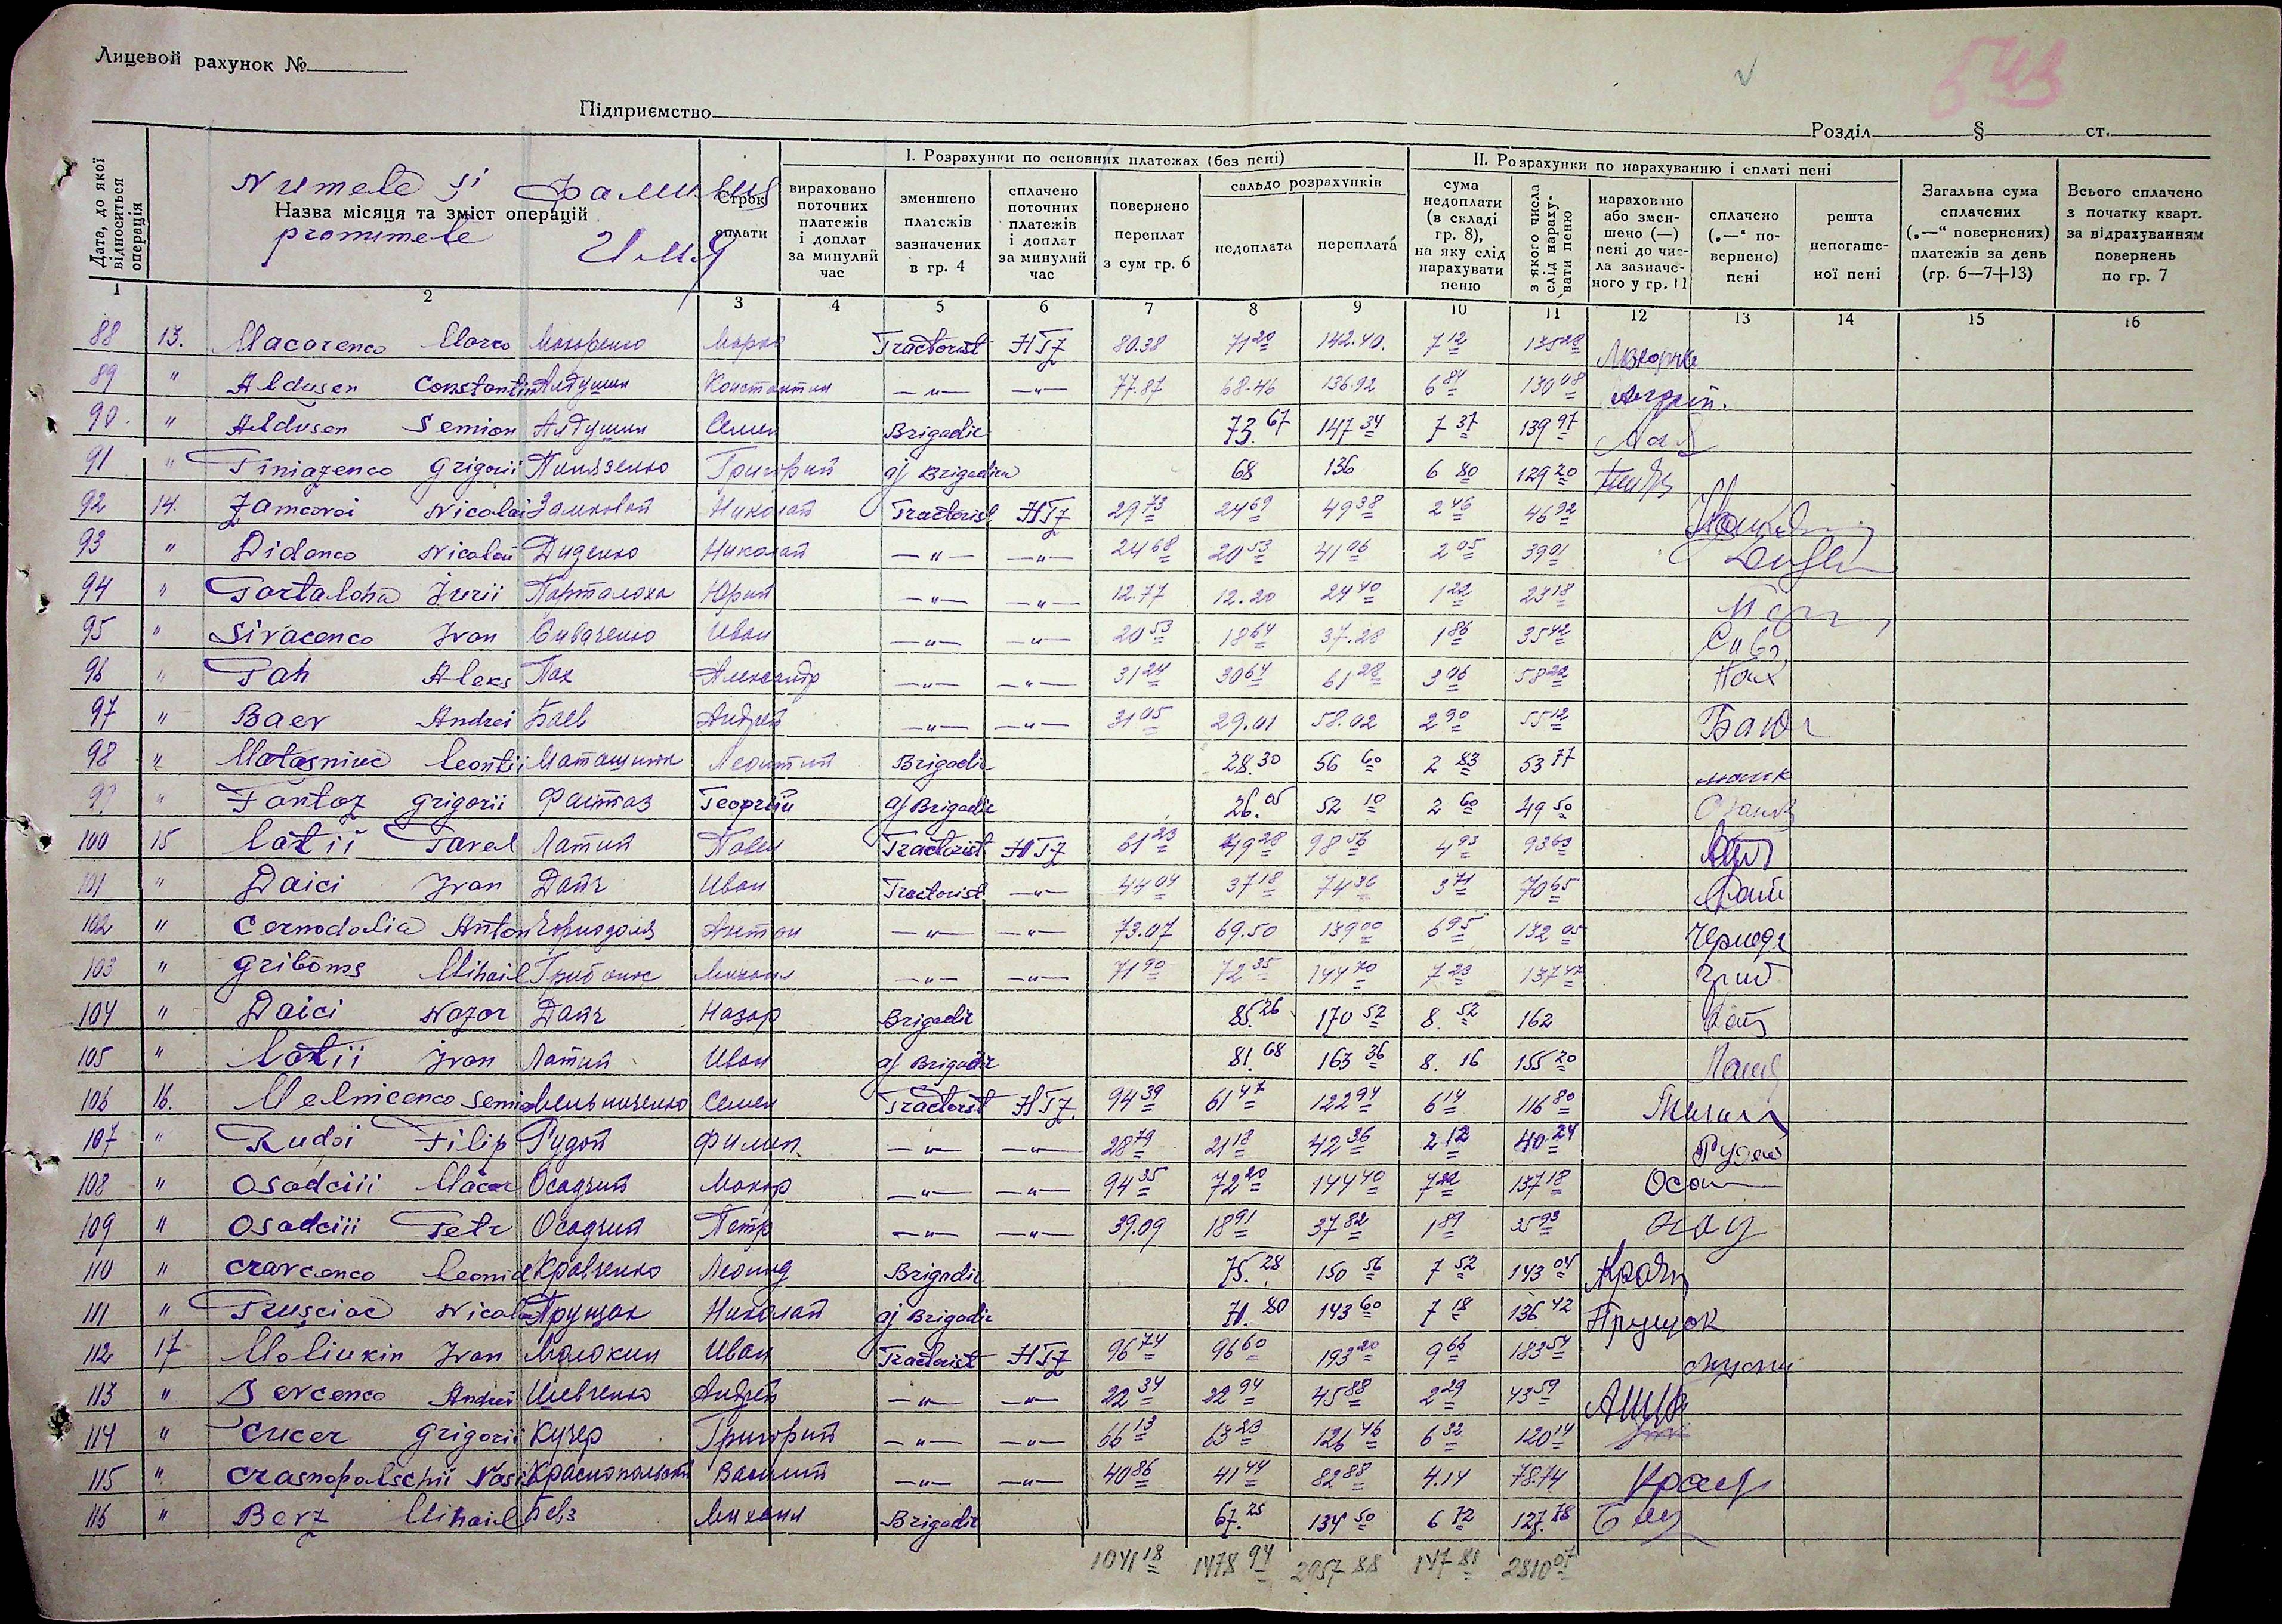 Лицевой рахунок №
543
Підприємство
Розділ § ст.
Дата, до якої відноситься операція
Numele și Фамилия
Назва місяця та зміст операцій
pronumele Имя
Строк оплати
I. Розрахунки по основних платежах (без пені)
вираховано поточних платежів і доплат за минулий час
зменшено платежів зазначених в гр. 4
сплачено поточних платежів і доплат за минулий час
повернено переплат з сум гр. 6
сальдо розрахунків
недоплата
переплата
II. Розрахунки по нарахуванню і сплаті пені
сума недоплати (в складі гр. 8), на яку слід нарахувати пеню
з якого числа слід нарахувати пеню
нараховано або зменшено (—) пені до числа зазначеного у гр. 11
сплачено („—“ повернено) пені
решта непогашеної пені
Загальна сума сплачених („—“ повернених) платежів за день (гр. 6—7+13)
Всього сплачено з початку кварт. за відрахуванням повернень по гр. 7
1 2 3 4 5 6 7 8 9 10 11 12 13 14 15 16
88 13. Macarenco Marco Макаренко Марко Tractorist HTZ 80.38 71 20 142.40. 7 12 135 28
89 " Aldusen Constantin Алдушин Константин —"— —"— 77.87 68.46 136.92 6 84 130 08
90. " Aldusen Semion Алдушин Семен Brigadir 73.67 147 34 7 37 139 97
91 " Piniazenco Grigorii Пинязенко Григорий aj Brigadir 68 136 6 80 129 20
92 14. Zamcovoi Nicolai Замковой Николай Tractorist HTZ 29 73 24 69 49 38 2 46 46 92
93 " Didenco Nicolai Диденко Николай —"— —"— 24 68 20 53 41 06 2 05 39 01
94 " Portaloha Iurii Порталоха Юрий —"— —"— 12.77 12.20 24 40 1 22 23 18
95 " Sivacenco Ivan Сиваченко Иван —"— —"— 20 53 18 64 37.28 1 86 35 42 Сив
96 " Pah Aleks Пах Александр —"— —"— 31 24 30 64 61 28 3 06 58 22 Пах
97 " Baev Andrei Баев Андрей —"— —"— 31 05 29.01 58.02 2 90 55 12
98 " Matasniuc Leontii Матащнюк Леонтий Brigadir 28.30 56 60 2 83 53 77
99 " Fantaz Grigorii Фантаз Георгий aj Brigadir 26.05 52 10 2 60 49 50
100 15 Latii Pavel Латий Павел Tractorist HTZ 61 23 49 28 98 56 4 93 93 63
101 " Daici Ivan Дайч Иван Tractorist —"— 44 04 37 18 74 36 3 71 70 65 Дайч
102 " Cernodolia Anton Чорнодоля Антон —"— —"— 73.07 69.50 139 00 6 95 132 05
103 " Gribans Mihail Грибанс Михаил —"— —"— 71 90 72 35 144 70 7 23 137 47 Гриб
104 " Daici Nazar Дайч Назар Brigadir 85.26 170 52 8.52 162
105 " Latii Ivan Латий Иван aj Brigadir 81.68 163 36 8.16 155 20
106 16. Melnicenco Semion Мельниченко Семен Tractorist HTZ. 94 39 61 47 122 94 6 14 116 80
107 " Rudoi Filip Рудой Филип. —"— —"— 28 79 21 18 42 36 2 12 40.24 Рудой
108 " Osadciii Macar Осадчий Макар —"— —"— 94 35 72 20 144 40 7 22 137 18 Оса
109 " Osadciii Petr Осадчий Петр —"— —"— 39.09 18 91 37 82 1 89 35 93
110 " Cravcenco Leonid Кравченко Леонид Brigadir 75.28 150 56 7 52 143 04
111 " Prusciac Nicolai Прущак Николай aj Brigadir 71.80 143 60 7 18 136 42 Прущок
112 17 Moliukin Ivan Молокин Иван Tractorist HTZ 96 74 96 60 193 20 9 66 183 54
113 " Sevcenco Andrei Шевченко Андрей —"— —"— 22 34 22 94 45 88 2 29 43 59
114 " Cucer Grigorii Кучер Григорий —"— —"— 66 13 63 23 126 46 6 32 120 14
115 " Crasnopolschii Vasi Краснопольский Василий —"— —"— 40 86 41 44 82 88 4.14 78.74
116 " Bevz Mihail Бевз Михаил Brigadir 67.25 134 50 6 72 127.78
1041 18 1478 94 2957 88 147 81 2810 07